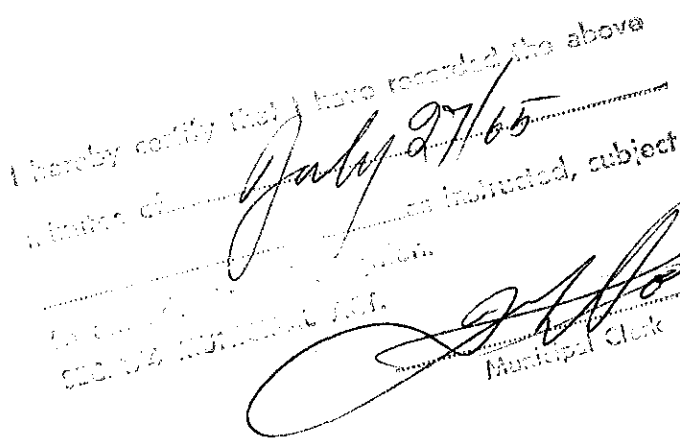 I hereby certify that I have recorded the above
minutes of July 27/65
as instructed, subject
to
SEC. MUNICIPAL ACT.
Municipal Clerk